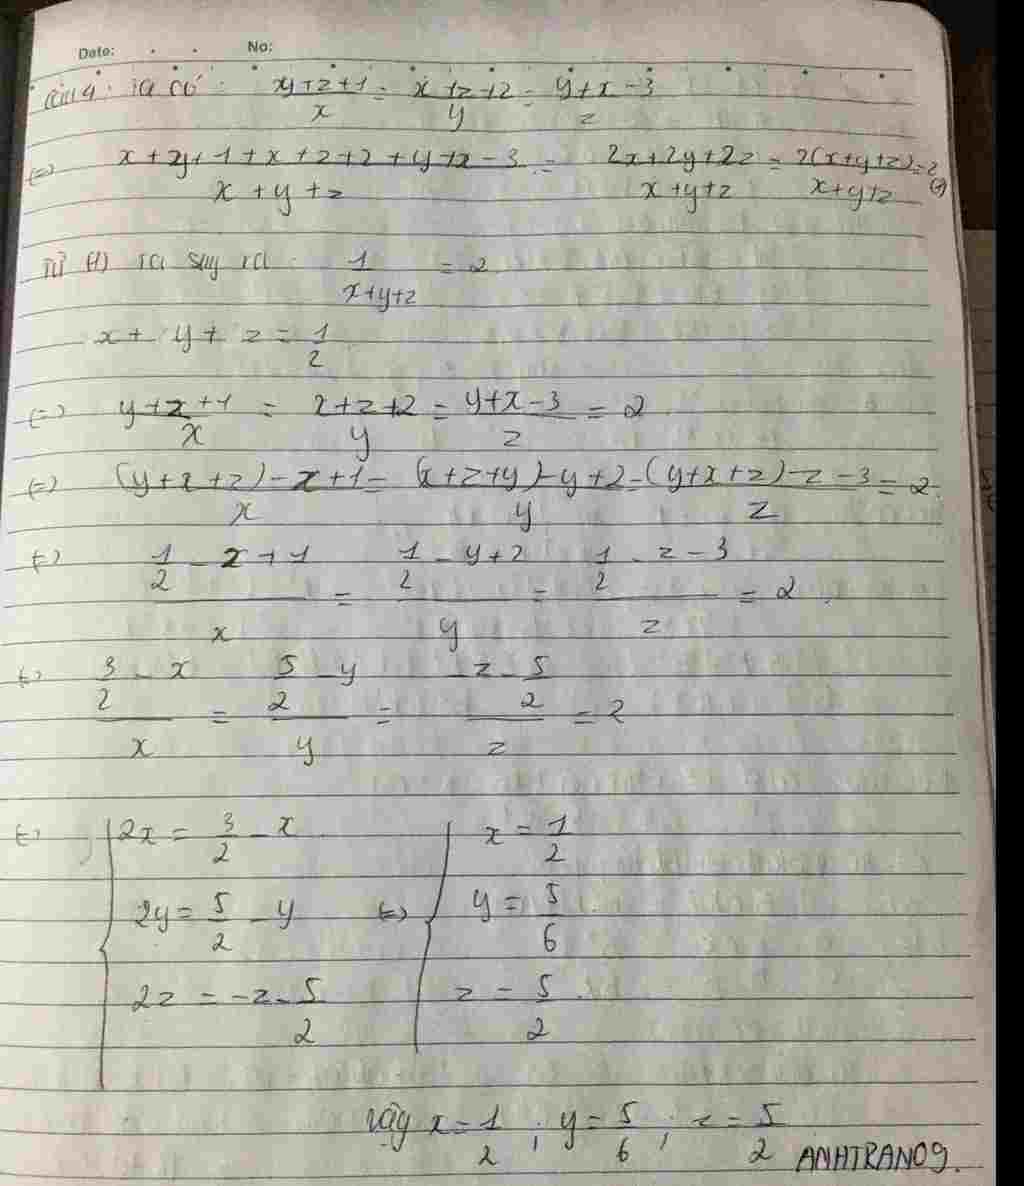 Date: No:
Câu 4: Ta có: (y+z+1)/x = (x+z+2)/y = (y+x-3)/z
(=) (x+zy+1+x+z+2+y+x-3)/(x+y+z) = (2x+2y+2z)/(x+y+z) = 2(x+y+z)/(x+y+z) = 2 (1)
Từ (1) ta suy ra: 1/(x+y+z) = 2
x + y + z = 1/2
(=) (y+z+1)/x = (x+z+2)/y = (y+x-3)/z = 2
(=) ((y+x+z)-x+1)/x = ((x+z+y)-y+2)/y = ((y+x+z)-z-3)/z = 2
(=) (1/2-x+1)/x = (1/2-y+2)/y = (1/2-z-3)/z = 2
(=) (3/2-x)/x = (5/2-y)/y = (-z-5/2)/z = 2
(=) { 2x = 3/2 - x { x = 1/2
2y = 5/2 - y (=) y = 5/6
2z = -z - 5/2 z = 5/2
Vậy x = 1/2 ; y = 5/6 ; z = 5/2
ANHTRAN09.